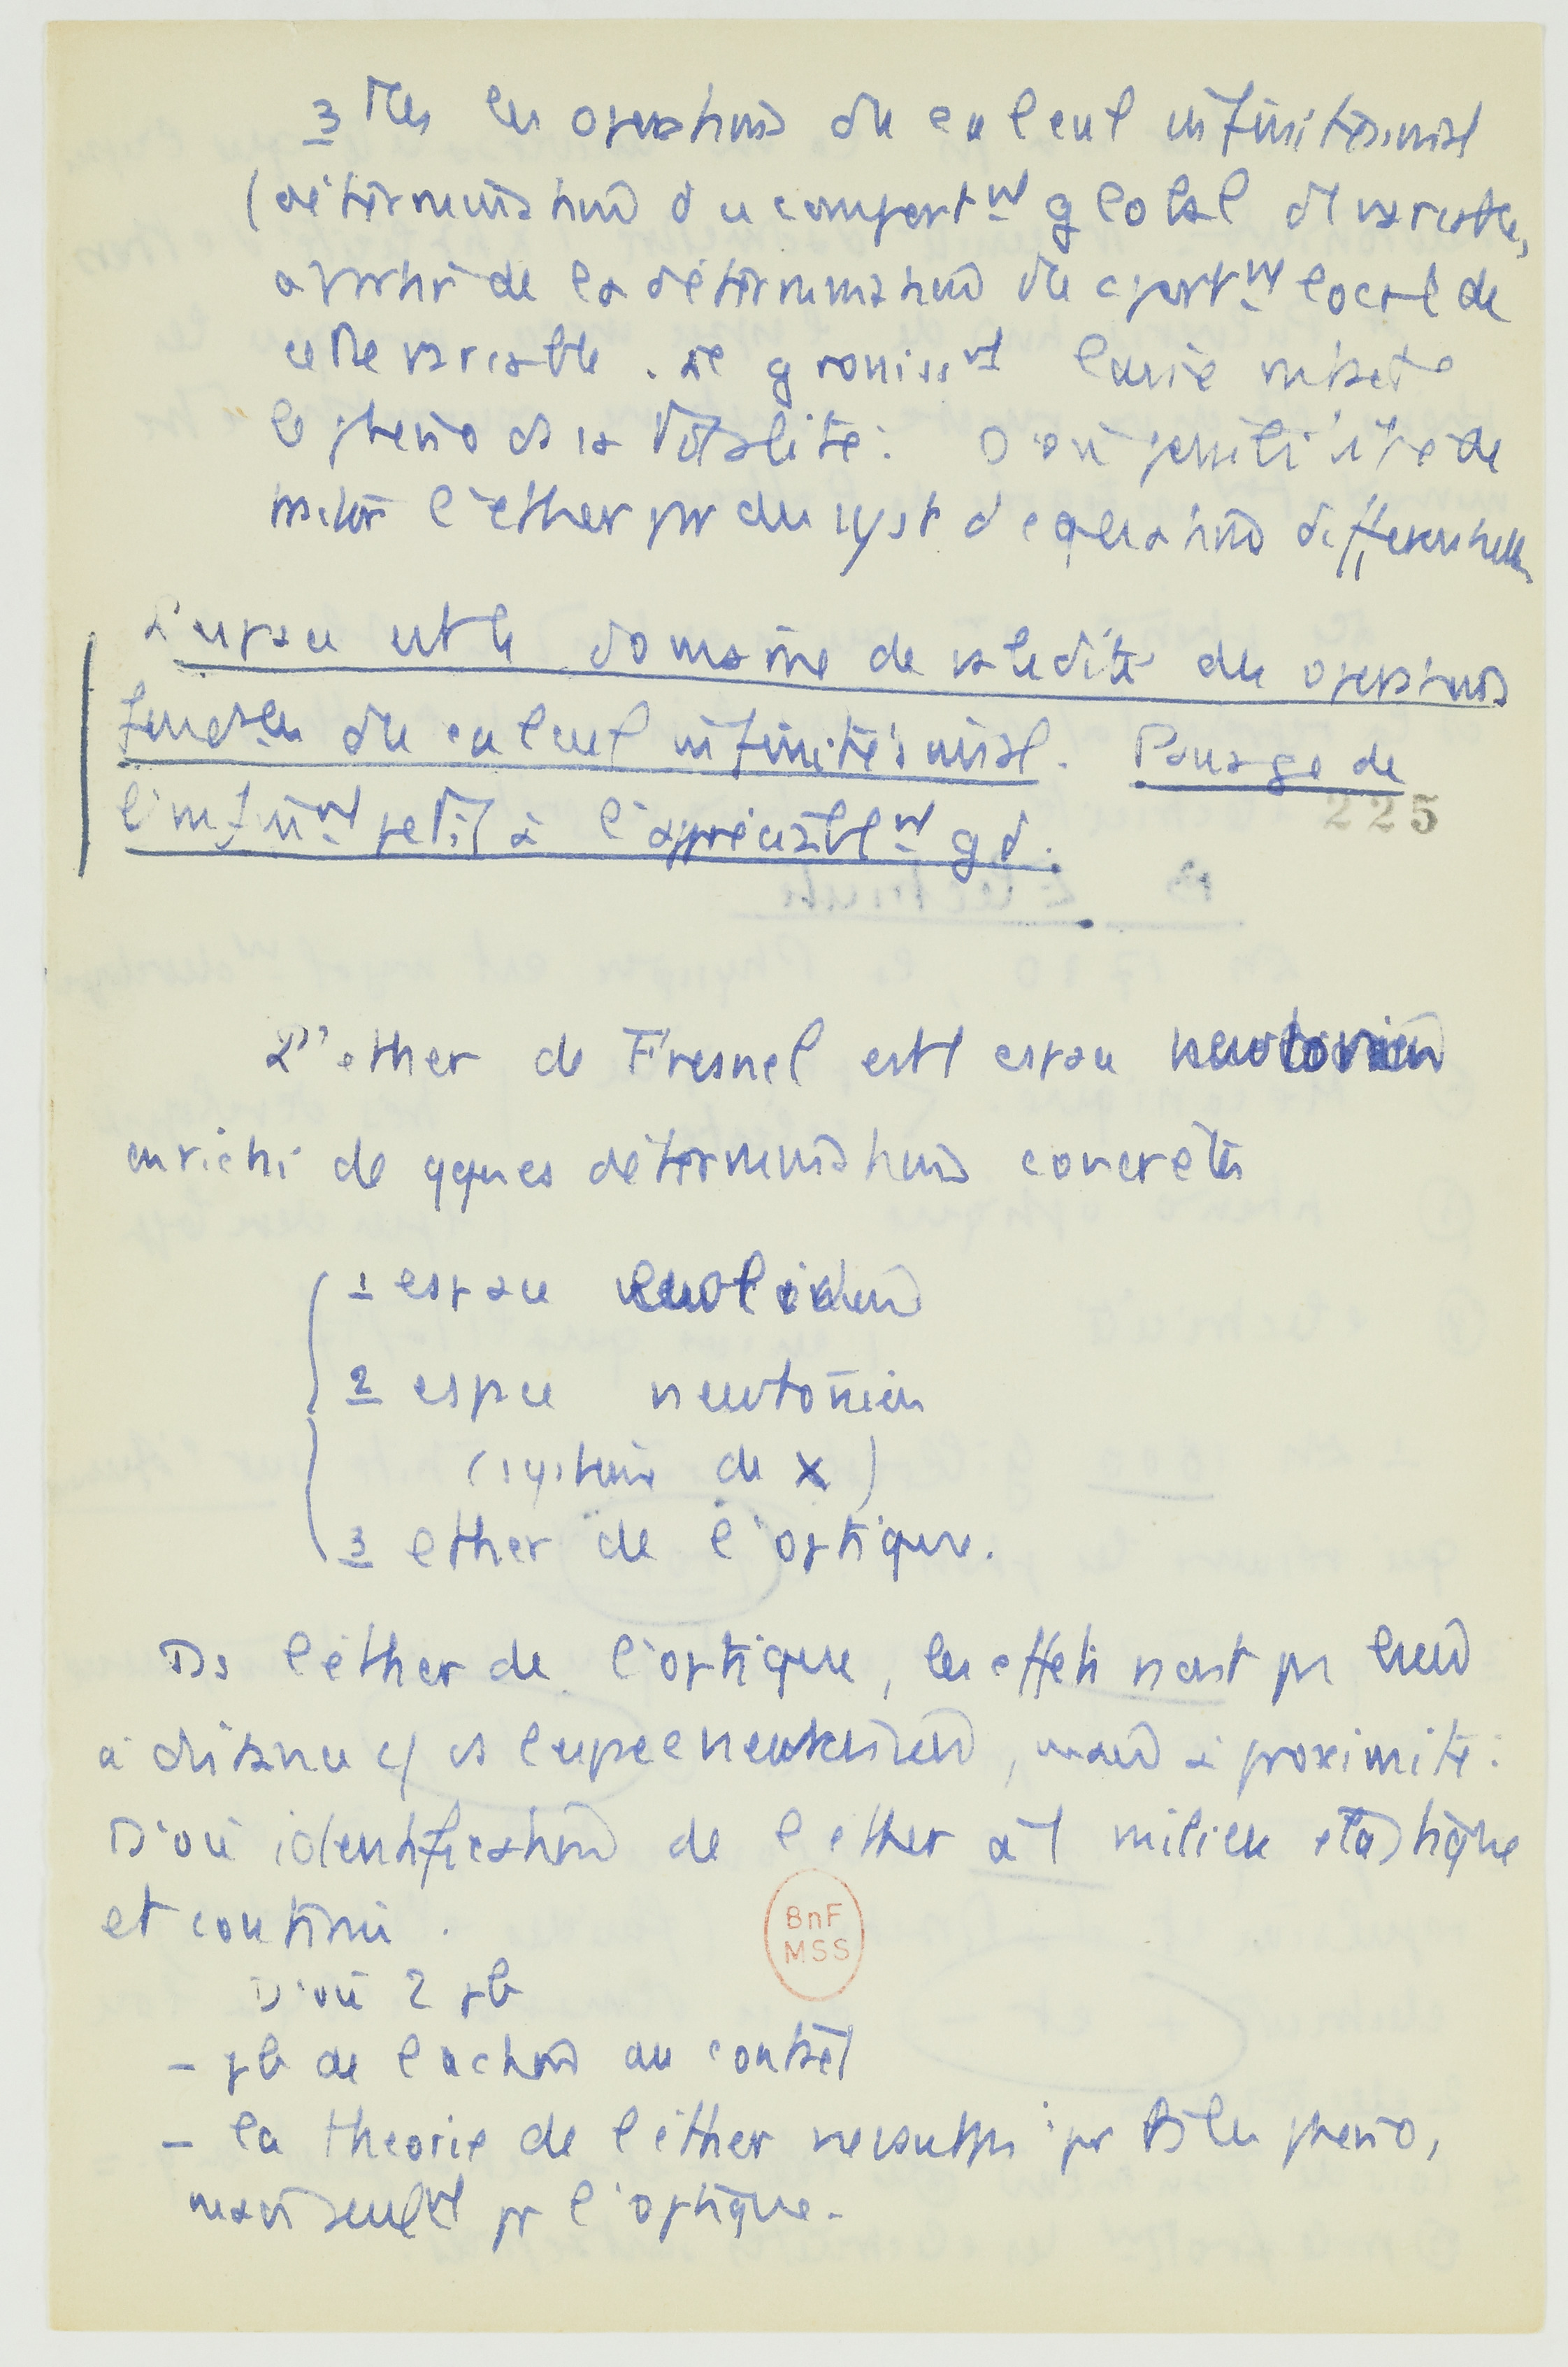 3 Ttes les operations du calcul infinitesimal
(détermination du comportnt global d1 variable,
a partir de la détermination du cportnt local de
cette variable.
le pheno ds sa totalité: D'où possibilité de
traiter l'ether par des syst d'equations differentielles
L'espace est le domaine de validité des operations
fondtales du calcul infinitésimal. Passage de
l'infinimt petit à l'appréciablemt gd.
225
L'ether de Fresnel est l'espace newtonien
enrichi de qques déterminations concrètes
1 espace euclidien
2 espace newtonien
(système de x)
3 ether de l'optique.
Ds l'éther de l'optique, les effets n'ont pas lieu
à distance c/ ds l'espace newtonien, mais à proximité:
D'où identification de l'ether à 1 milieu elastique
et continu.
D'où 2 pb
- pb de l'action au contact
- la theorie de l'éther ne vaut pas pr ts les pheno,
mais seulmt pr l'optique.
BnF
MSS